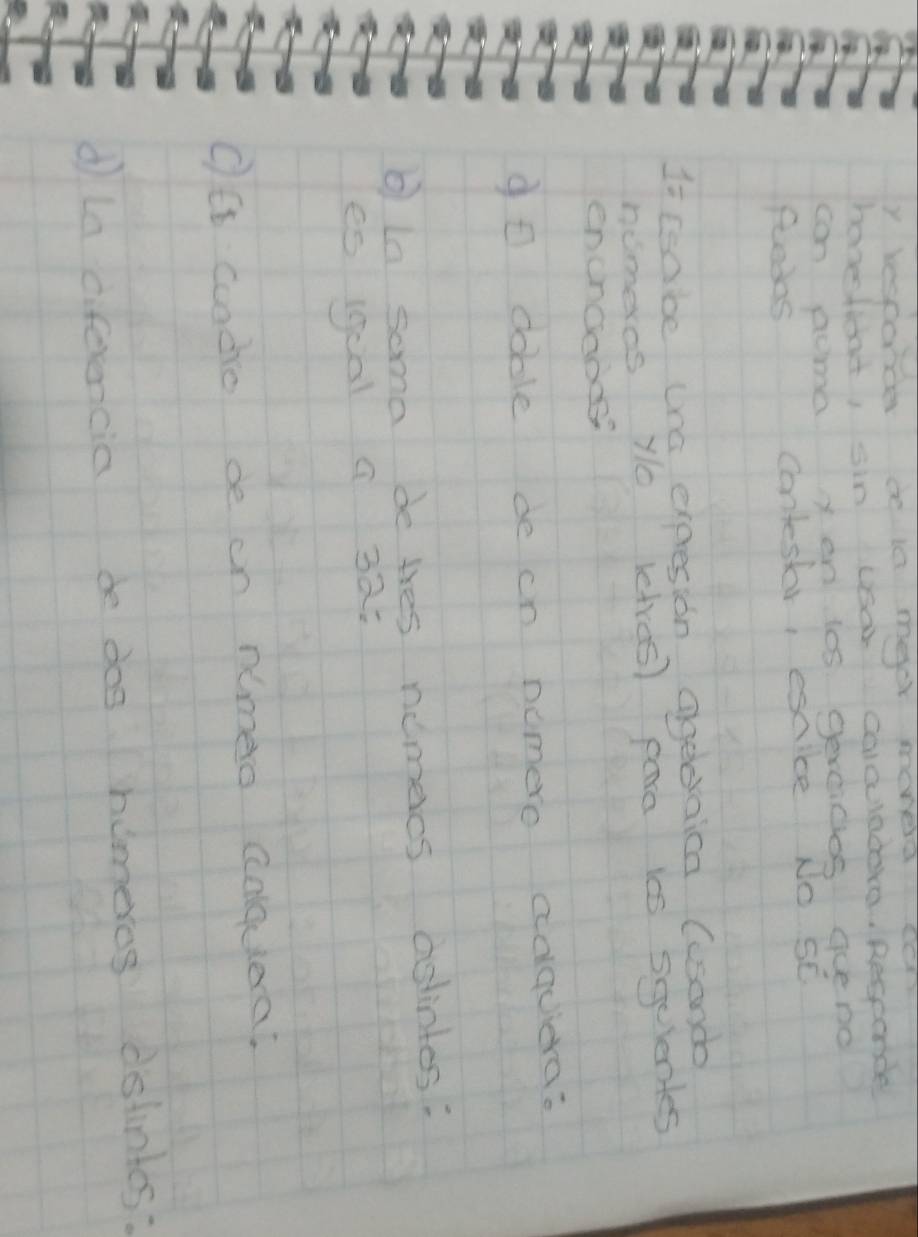 y responda de la mejor manera con
honestidad, sin usar calculadora. Responde
con pluma y en los ejercicios que no
puedas contestar, escribe No sé
1: Escribe una expresión algebraica (usando
números y/o letras) para los siguientes
enunciados:
a) El doble de un número cualquiera:
b) La suma de tres números distintos:
es igual a 32:
c) El cuadro de un número cualquiera:
d) La diferencia de dos números distintos: